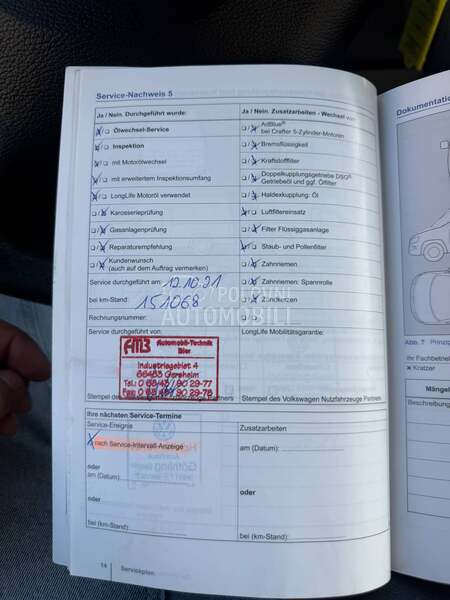 Service-Nachweis 5
Ja / Nein. Durchgeführt wurde:
Ölwechsel-Service
Inspektion
mit Motorölwechsel
mit erweitertem Inspektionsumfang
LongLife Motoröl verwendet
Karosserieprüfung
Gasanlagenprüfung
Reparaturempfehlung
Kundenwunsch
(auch auf dem Auftrag vermerken)
Service durchgeführt am: 12.10.21
bei km-Stand: 151068
Rechnungsnummer:
Service durchgeführt von:
AMB Automobil-Technik
Bier
Industriegebiet 4
66453 Gersheim
Tel.: 0 68 43 / 90 29-77
Fax: 0 68 43 / 90 29-78
Stempel des Volkswagen Nutzfahrzeuge Partners
Ja / Nein. Zusatzarbeiten - Wechsel von:
AdBlue®
bei Crafter 5-Zylinder-Motoren
Bremsflüssigkeit
Kraftstofffilter
Doppelkupplungsgetriebe DSG®
Getriebeöl und ggf. Ölfilter
Haldexkupplung: Öl
Luftfiltereinsatz
Filter Flüssiggasanlage
Staub- und Pollenfilter
Zahnriemen
Zahnriemen: Spannrolle
Zündkerzen
LongLife Mobilitätsgarantie:
Stempel des Volkswagen Nutzfahrzeuge Partners
POLOVNI
AUTOMOBILI
Ihre nächsten Service-Termine
Service-Ereignis
nach Service-Intervall-Anzeige
oder
am (Datum):
oder
bei (km-Stand):
Zusatzarbeiten
am (Datum):
oder
bei (km-Stand):
14
Serviceplan
Dokumentatio
Abb. 7 Prinzip
Ihr Fachbetrieb
Kratzer
Mängel
Beschreibung